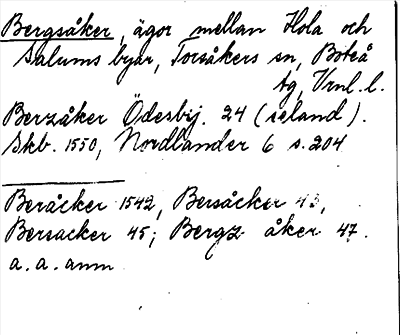 Bergsåker, ägor mellan Hola och
Salums byar, Torsåkers sn, Boteå
tg, Vrnl. l.
Berzåker Ödesbij. 24 (öeland).
Skb. 1550, Nordlander 6 s. 204
Beråcker 1542, Bersåcker 43,
Bersacker 45; Bergz åker 47.
a. a. anm